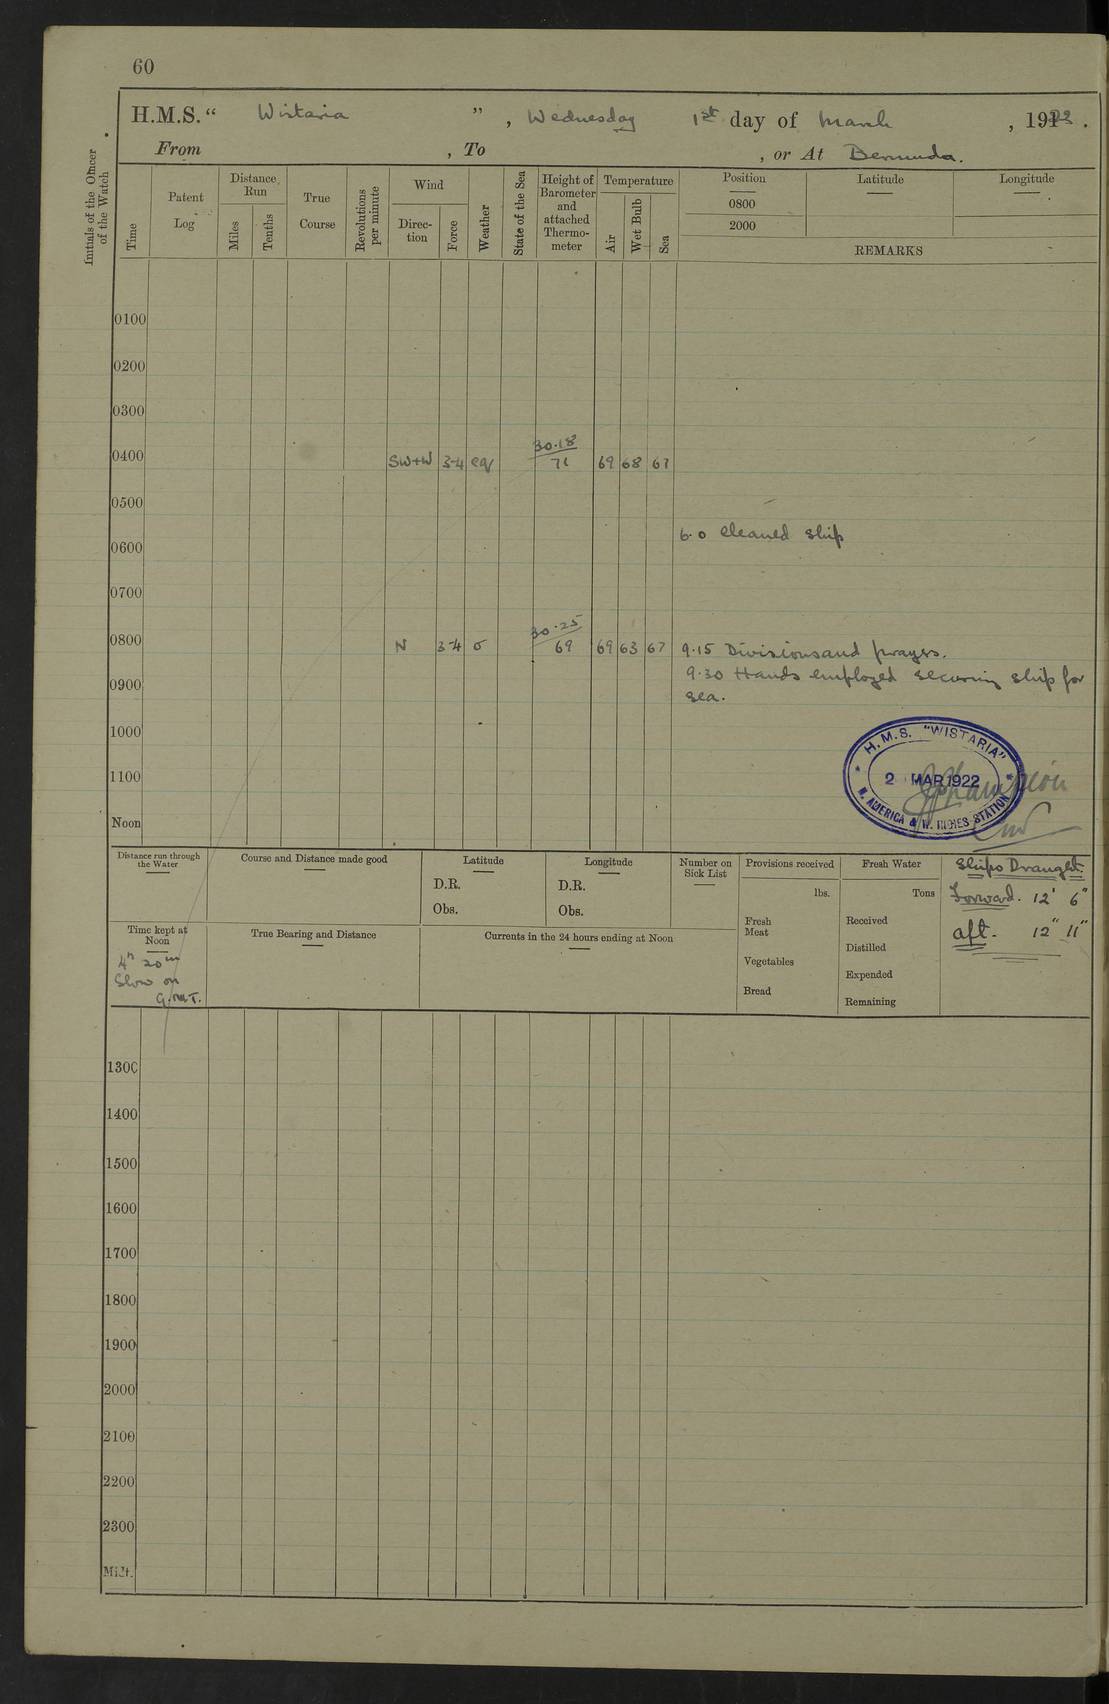 60
H.M.S. “ Wistaria ” , Wednesday 1st day of March , 1922 .
From , To , or At Bermuda.
Initials of the Officer of the Watch
Time
Patent Log
Distance Run
Miles
Tenths
True Course
Revolutions per minute
Wind
Direction
Force
Weather
State of the Sea
Height of Barometer and attached Thermometer
Temperature
Air
Wet Bulb
Sea
Position
Latitude
Longitude
0800
2000
REMARKS
0100
0200
0300
30.18
0400 SW+W 3-4 cq 71 69 68 67
0500
6.0 cleaned ship
0600
0700
30.25
0800 N 3-4 o 69 69 63 67 9.15 Divisions and prayers.
9.30 Hands employed securing ship for
0900 sea.
1000
H.M.S. "WISTARIA"
2 MAR 1922
N. AMERICA & W. INDIES STATION
1100
Noon
Distance run through the Water
Course and Distance made good
Latitude
D.R.
Obs.
Longitude
D.R.
Obs.
Number on Sick List
Provisions received
lbs.
Fresh Meat
Vegetables
Bread
Fresh Water
Tons
Received
Distilled
Expended
Remaining
Ships Draught.
Forward. 12' 6"
aft. 12" 11"
Time kept at Noon
4h 20m
Slow on
G.M.T.
True Bearing and Distance
Currents in the 24 hours ending at Noon
1300
1400
1500
1600
1700
1800
1900
2000
2100
2200
2300
Midt.